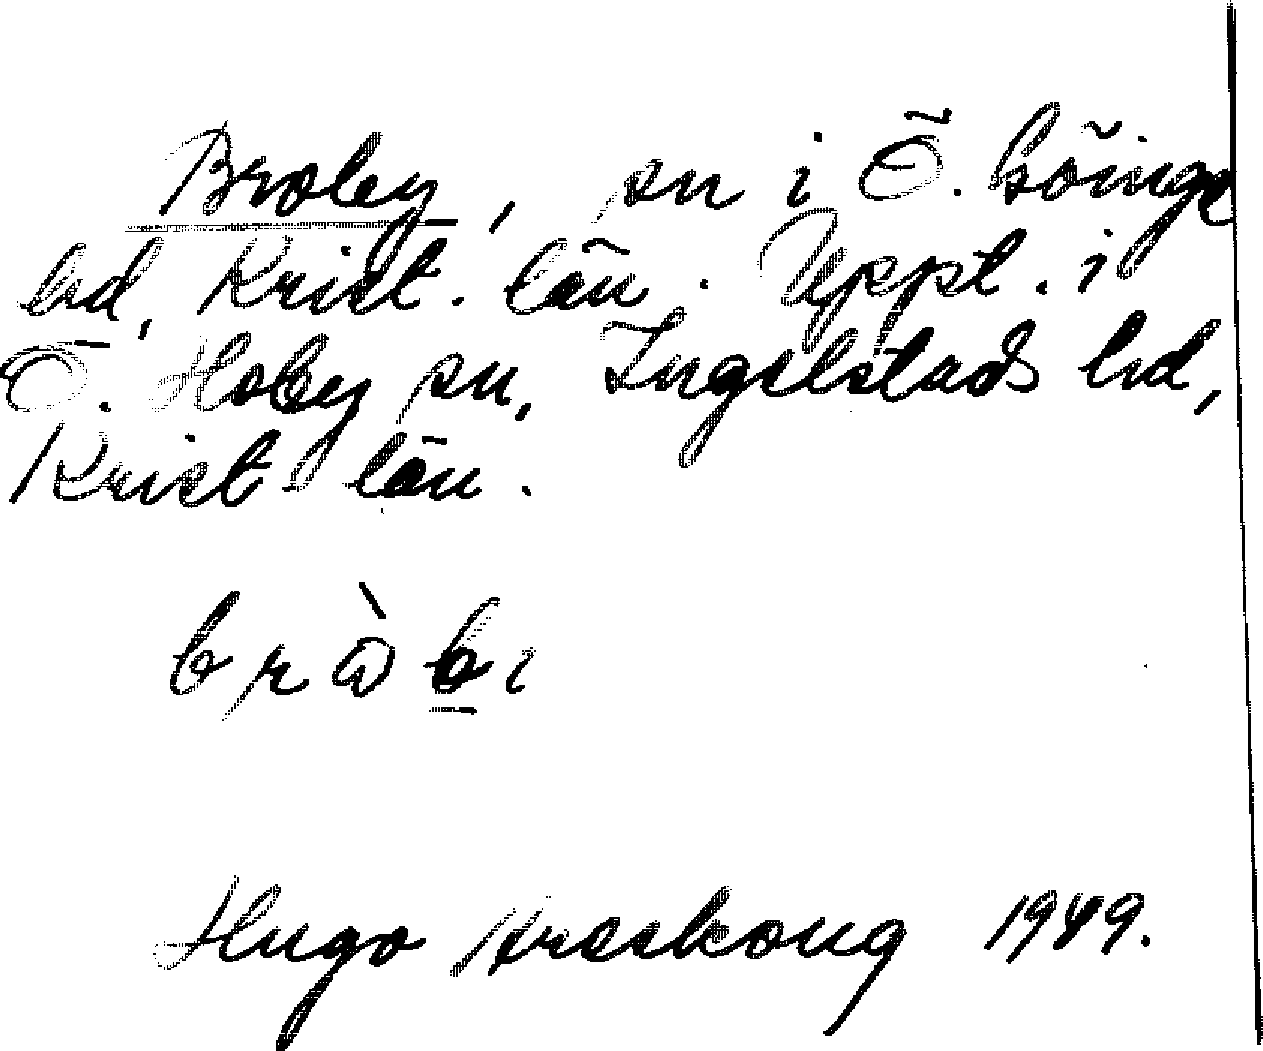 Broby, sn i Ö. Göinge
hd, Krist. län. Uppt. i
Ö. Hoby sn, Ingelstads hd,
Krist. län.
Hugo Areskoug 1949.